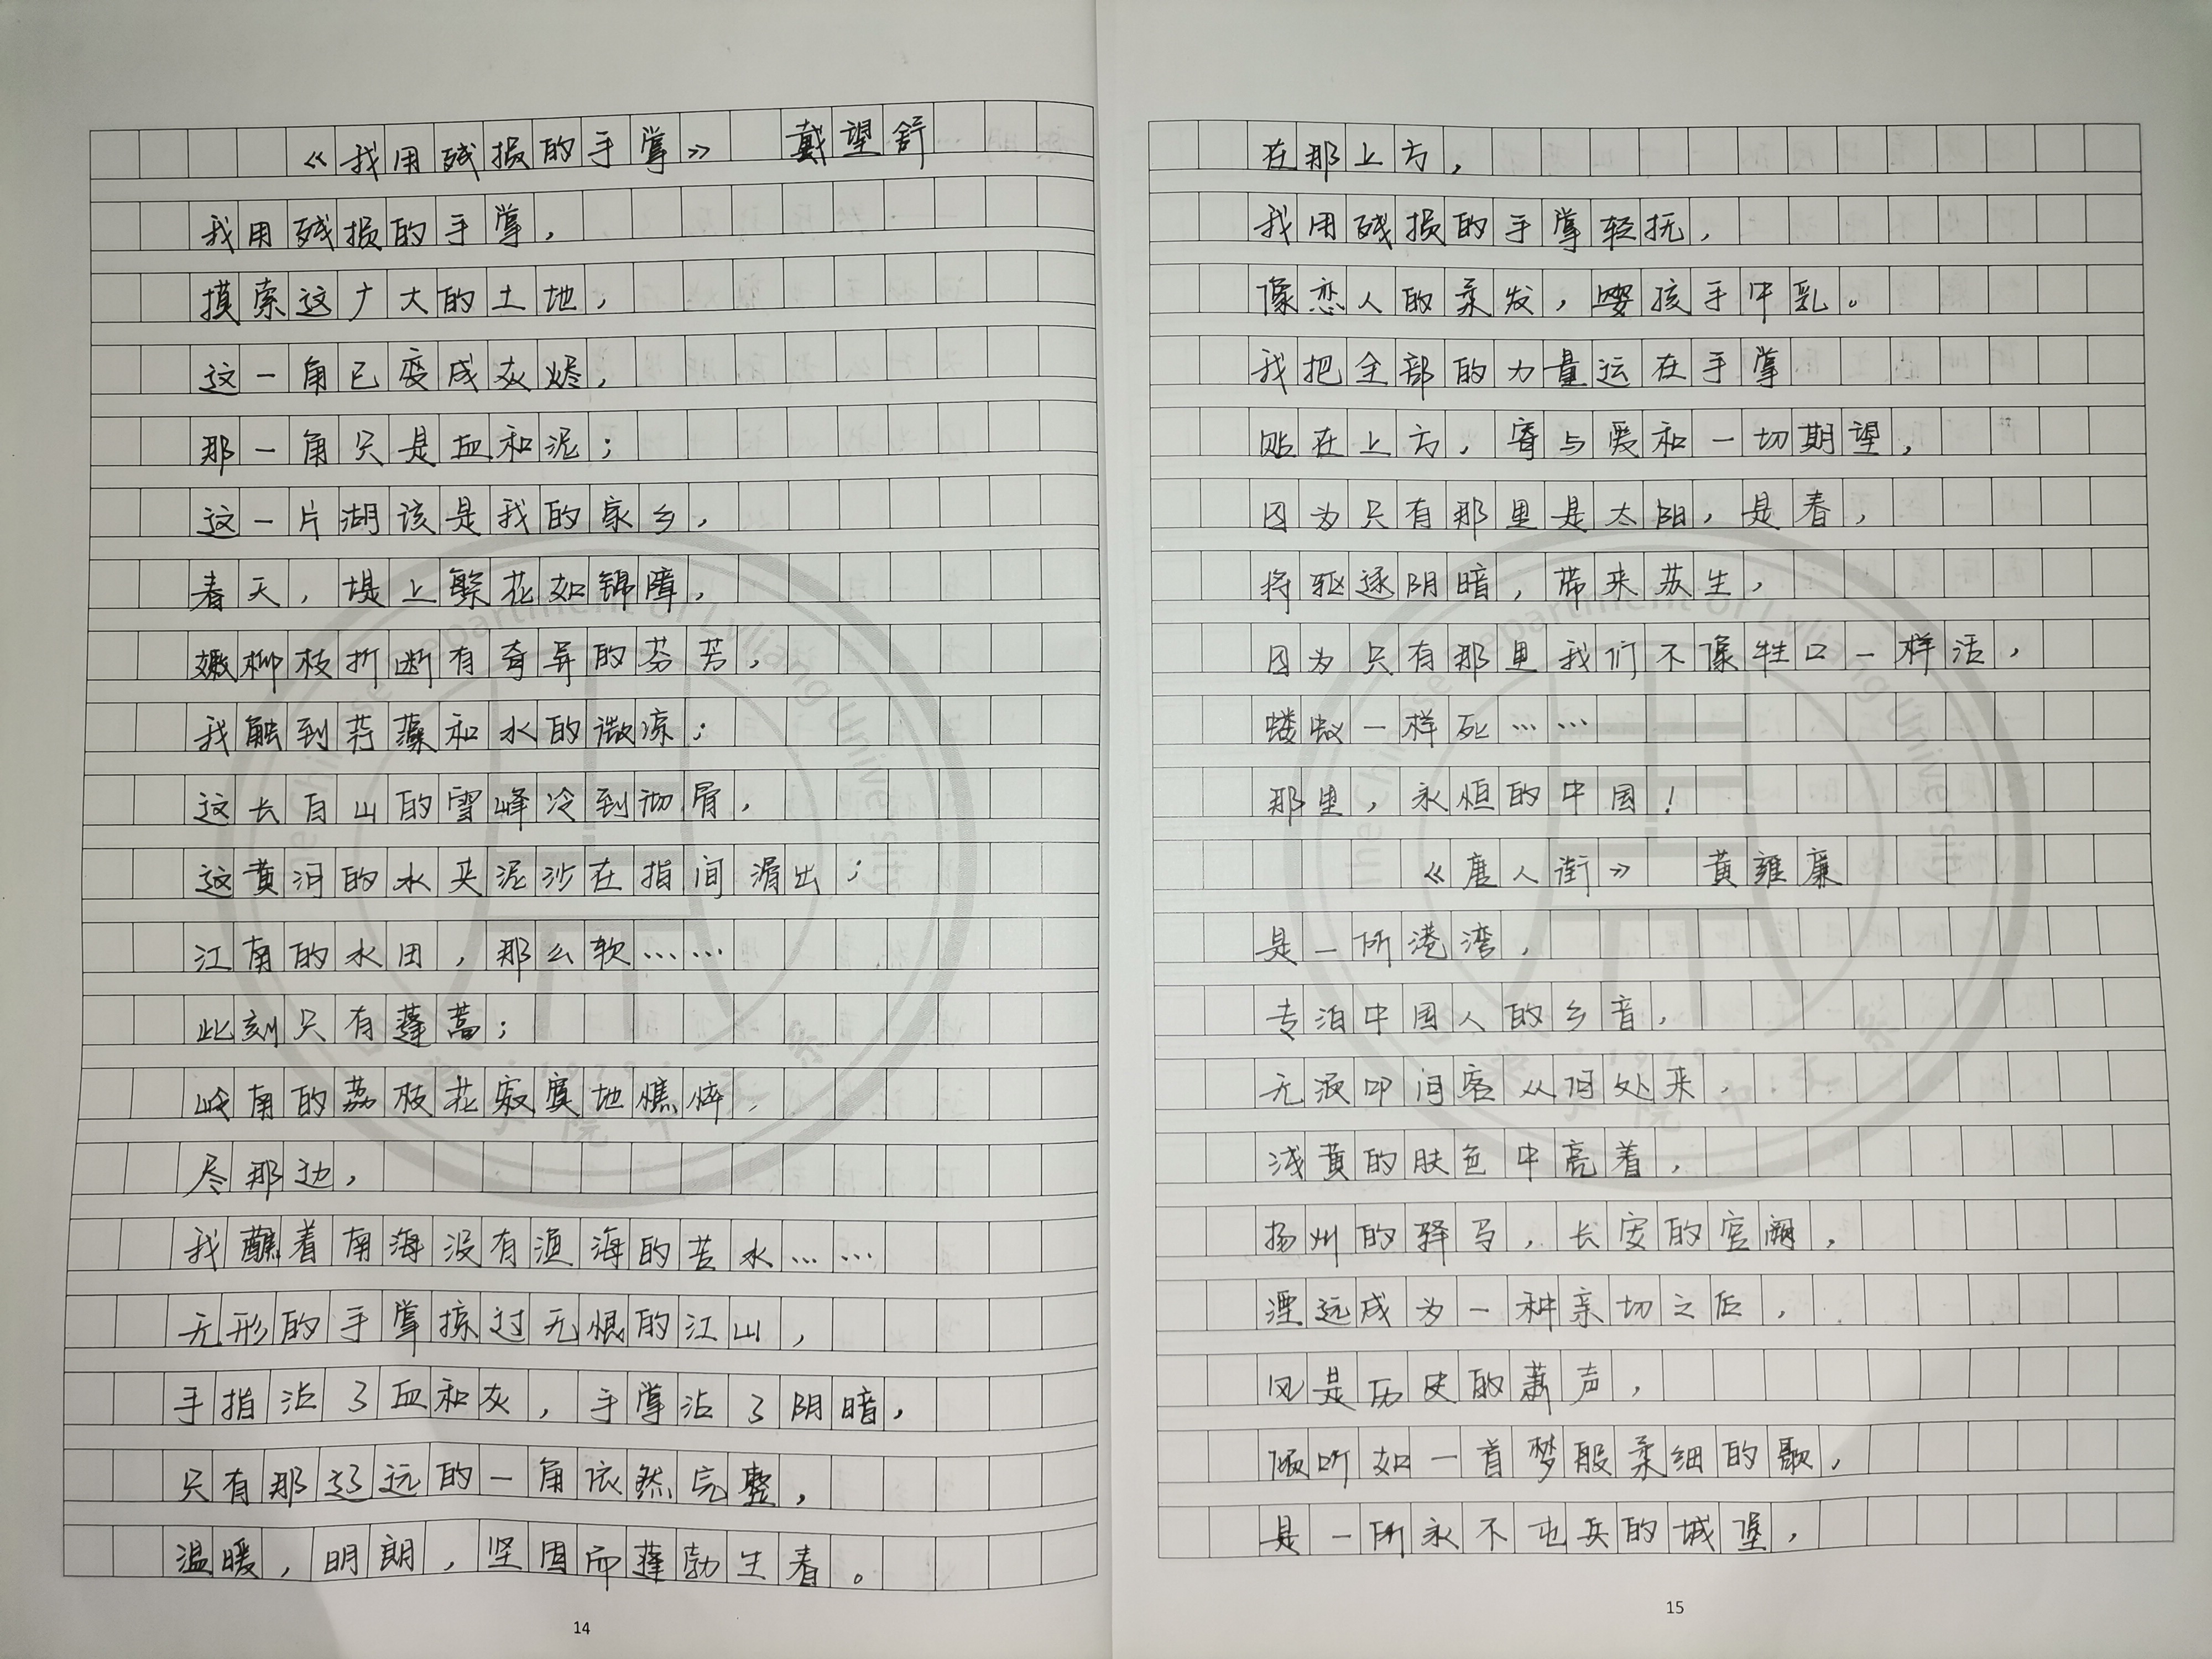 《我用残损的手掌》 戴望舒
我用残损的手掌,
摸索这广大的土地,
这一角已变成灰烬,
那一角只是血和泥;
这一片湖该是我的家乡,
春天,堤上繁花如锦障,
嫩柳枝折断有奇异的芬芳,
我触到荇藻和水的微凉;
这长白山的雪峰冷到彻骨,
这黄河的水夹泥沙在指间滑出;
江南的水田,那么软……
此刻只有蓬蒿;
岭南的荔枝花寂寞地憔悴,
尽那边,
我蘸着南海没有渔海的苦水……
无形的手掌掠过无恨的江山,
手指沾了血和灰,手掌沾了阴暗,
只有那辽远的一角依然完整,
温暖,明朗,坚固而蓬勃生春。
14
在那上方,
我用残损的手掌轻抚,
像恋人的柔发,婴孩手中乳。
我把全部的力量运在手掌
贴在上方,寄与爱和一切期望,
因为只有那里是太阳,是春,
将驱逐阴暗,带来苏生,
因为只有那里我们不像牲口一样活,
蝼蚁一样死……
那里,永恒的中国!
《唐人街》 黄雍廉
是一所港湾,
专泊中国人的乡音,
无须叩问客从何处来,
浅黄的肤色中亮着,
扬州的驿马,长安的宫阙,
湮远成为一种亲切之后,
风是历史的萧声,
倾听如一首梦般柔细的歌,
是一所永不屯兵的城堡,
15
The Chinese Department of Lvliang University
1979